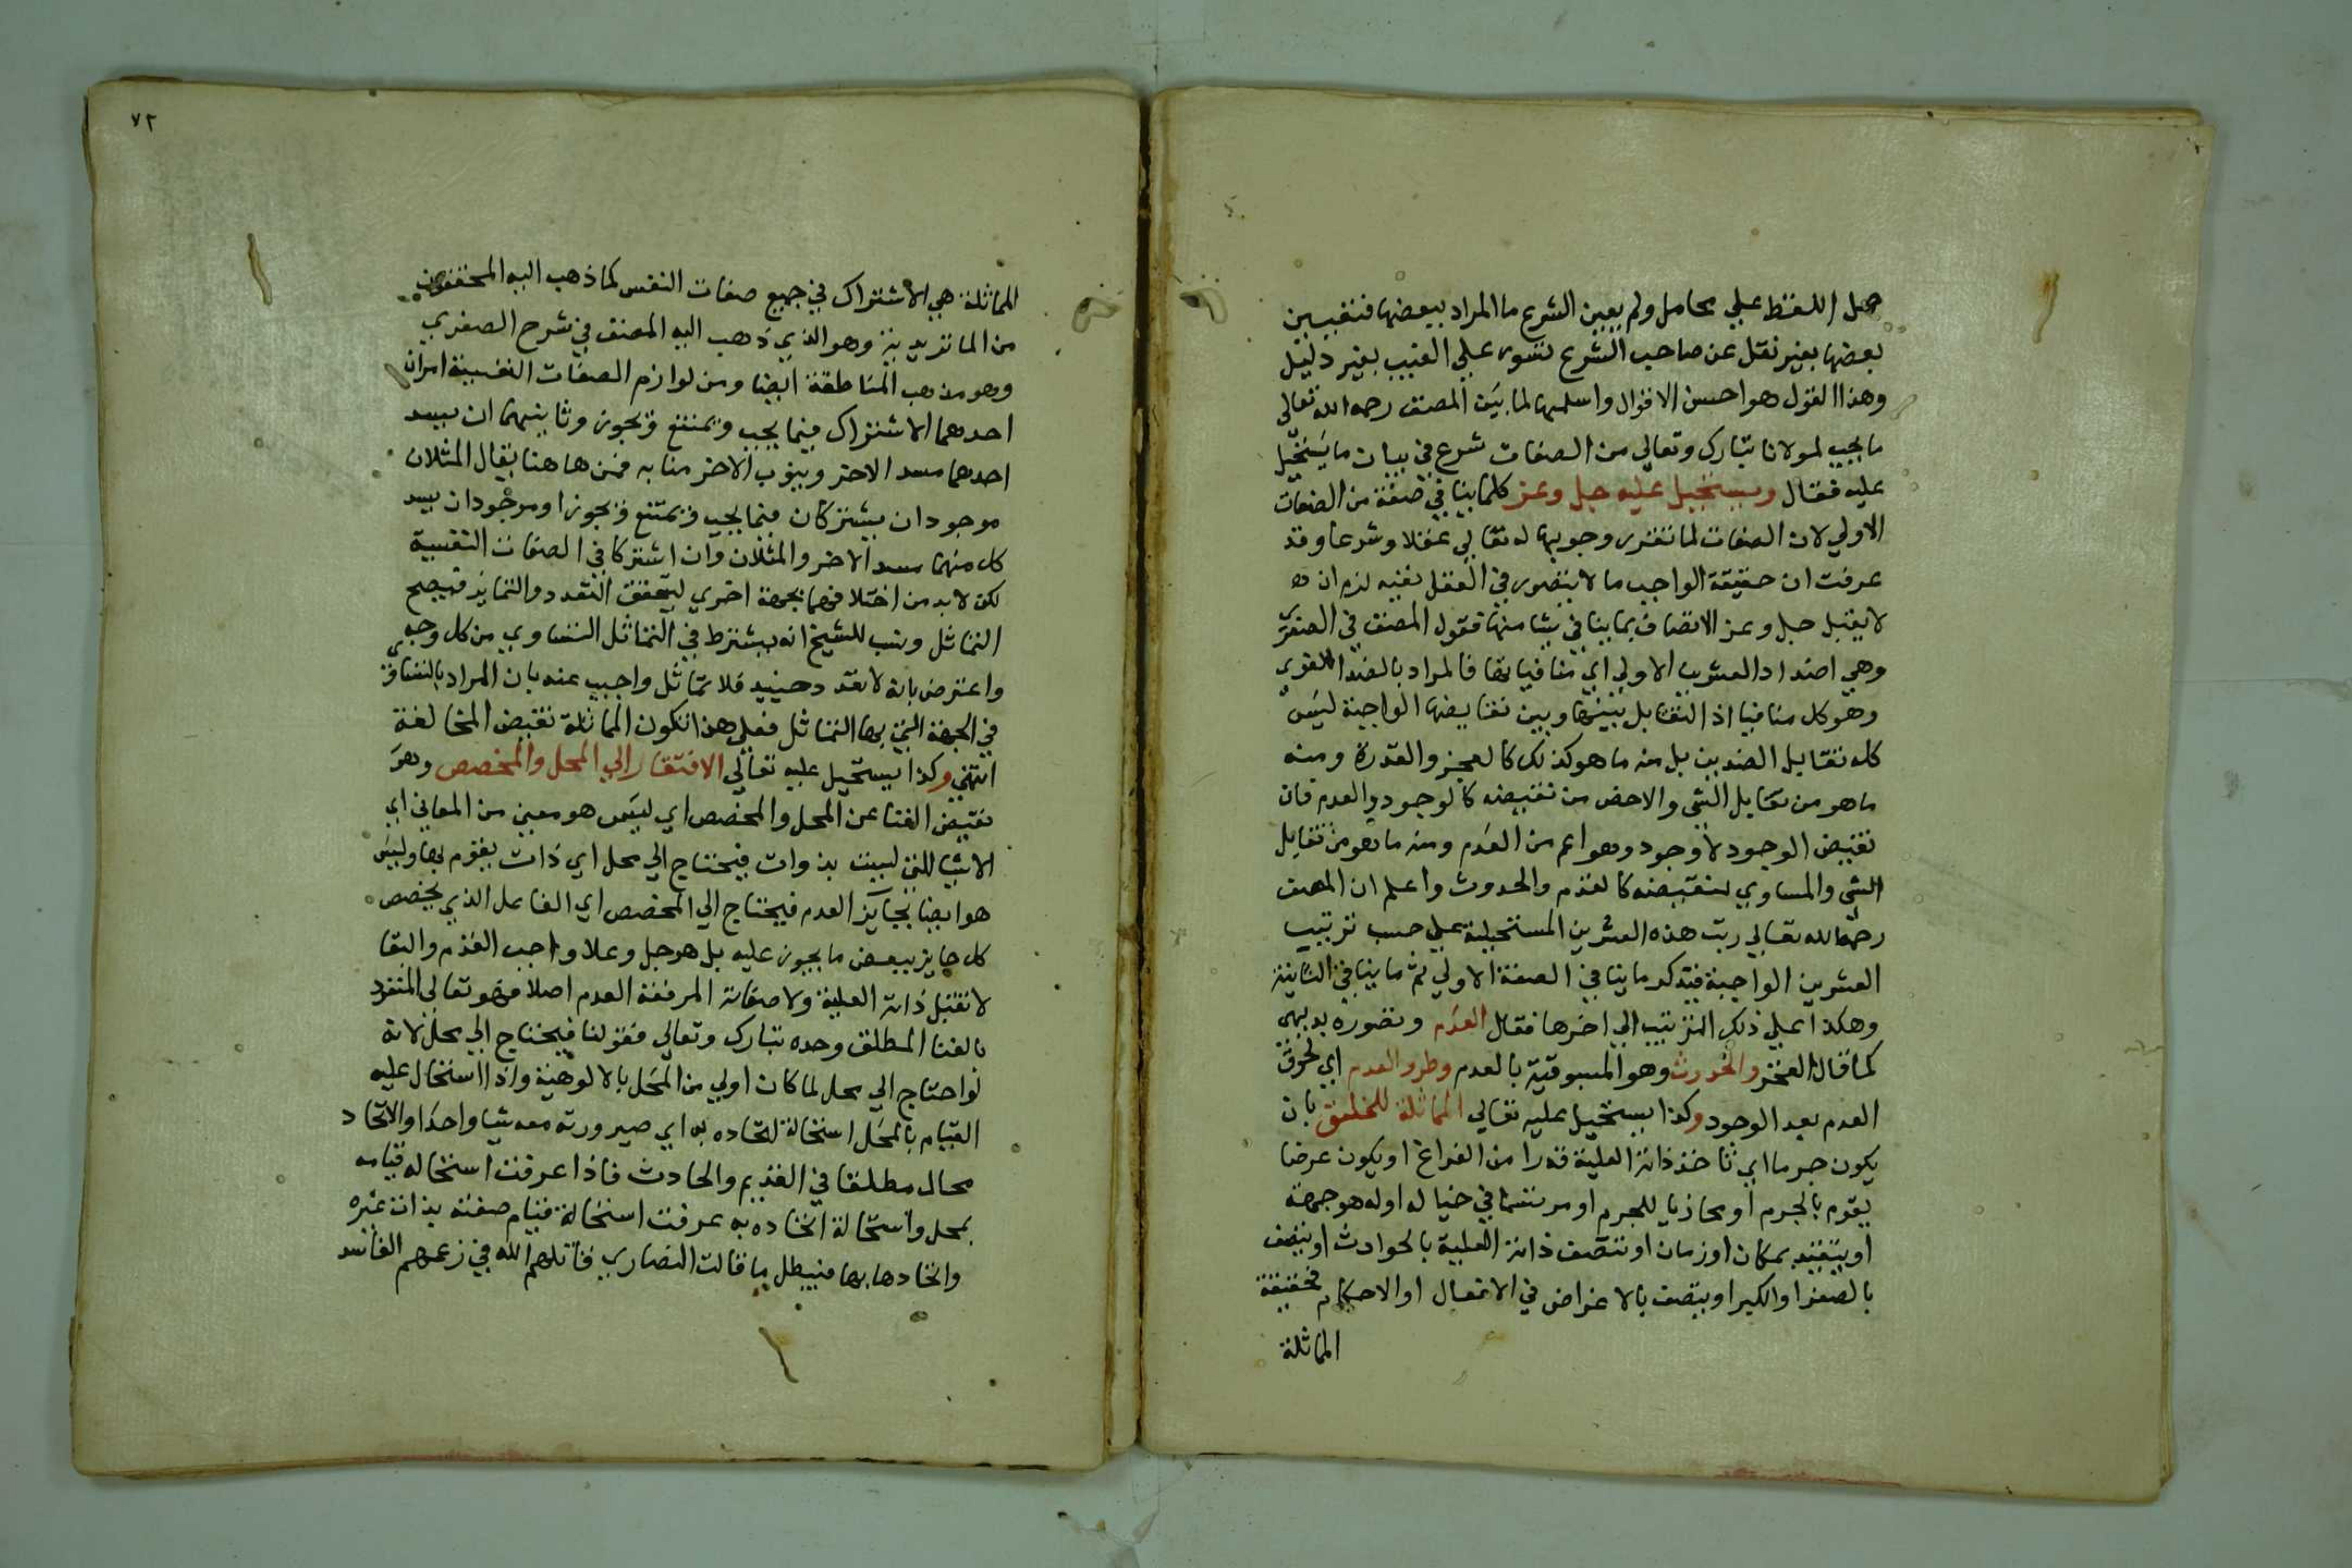 حمل اللفظ علي محامل ولم يعين الشرع ما المراد ببعضها فتعيين
بعضها بغير نقل عن صاحب الشرع تسور علي الغيب بغير دليل
وهذا القول هو احسن الاقوال واسلمها لما بين المصنف رحمه الله تعالى
ما يجب لمولانا تبارك وتعالي من الصفات شرع في بيان ما يستحيل
عليه فقال ويستحيل عليه جل وعز كلما ينافي صفة من الصفات
الاولي لان الصفات لما تقرر وجوبها له تعالي عقلا وشرعا وقد
عرفت ان حقيقة الواجب ما لا يتصور في العقل نفيه لزم ان
لا يقبل جل وعز الاتصاف بما ينافي شيا منها فقول المصنف في الصغرى
وهي اضداد العشرين الاولي اي منافياتها فالمراد بالضد اللغوي
وهو كل مناف اذ التقابل بينها وبين نقايضها الواجبة ليس
كله تقابل الضدين بل منه ما هو كذلك كالعجز والقدرة ومنه
ما هو من تقابل الشي والاخص من نقيضه كالوجود والعدم فان
نقيض الوجود لا وجود وهو اعم من العدم ومنه ما هو من تقابل
الشي والمساوي لنقيضه كالقدم والحدوث واعلم ان المصنف
رحمه الله تعالي رتب هذه العشرين المستحيلة علي حسب ترتيب
العشرين الواجبة فيذكر ما ينافي الصفة الاولي ثم ما ينافي الثانية
وهكذا علي ذلك الترتيب الي اخرها فقال العدم وتصوره بديهي
كما قال الفخر والحدوث وهو المسبوقية بالعدم وطرو العدم اي لحوق
العدم بعد الوجود وكذا يستحيل عليه تعالي المماثلة للخلق بان
يكون جرما اي تاخذ ذاته العلية قدرا من الفراغ او يكون عرضا
يقوم بالجرم او محاذيا للجرم او مرتسما في خياله او له هو جهة
او يتقيد بمكان او زمان او تتصف ذاته العلية بالحوادث او يتصف
بالصغر او الكبر او يتصف بالاغراض في الافعال او الاحكام فحقيقة
المماثلة
٧٢
المماثلة هي الاشتراك في جميع صفات النفس كما ذهب اليه المحققون
من الماتريدية وهو الذي ذهب اليه المصنف في شرح الصغري
وهو مذهب المناطقة ايضا ومن لوازم الصفات النفسية امران
احدهما الاشتراك فيما يجب ويمتنع ويجوز وثانيهما ان يسد
احدهما مسد الاخر وينوب الاخر منابه فمن هاهنا يقال المثلان
موجودان يشتركان فيما يجب ويمتنع ويجوز او موجودان يسد
كل منهما مسد الاخر والمثلان وان اشتركا في الصفات النفسية
لكن لا بد من اختلافهما بجهة اخري ليتحقق التعدد والتمايز فيصح
التماثل ونسب للشيخ انه يشترط في التماثل التساوي من كل وجه
واعترض بانه لا تعدد حينيد فلا تماثل واجيب عنه بان المراد بالتساوي
في الجهة التي بها التماثل فعلي هذا تكون المماثلة نقيض المخالفة
انتهي وكذا يستحيل عليه تعالي الافتقار الي المحل والمخصص وهو
نقيض الغنا عن المحل والمخصص اي ليس هو معين من المعاني اي
الاشيا التي ليست بذوات فيحتاج الي محل اي ذات يقوم بها وليس
هو ايضا بجايز العدم فيحتاج الي المخصص اي الفاعل الذي يخصص
كل جايز ببعض ما يجوز عليه بل هو جل وعلا واجب القدم والبقا
لا تقبل ذاته العلية ولا صفاته المرفعة العدم اصلا فهو تعالي المنفرد
بالغنا المطلق وحده تبارك وتعالي فقولنا فيحتاج الي محل لانه
لو احتاج الي محل لما كان اولي من المحل بالالوهية واذا استحال عليه
القيام بالمحل استحالة اتحاده به اي صيرورته معه شيا واحدا والاتحاد
محال مطلقا في القديم والحادث فاذا عرفت استحاله قيامه
بمحل واستحالة اتحاده به عرفت استحالة قيام صفته بذات غيره
واتحادها بها فيبطل ما قالت النصاري قاتلهم الله في زعمهم الفاسد